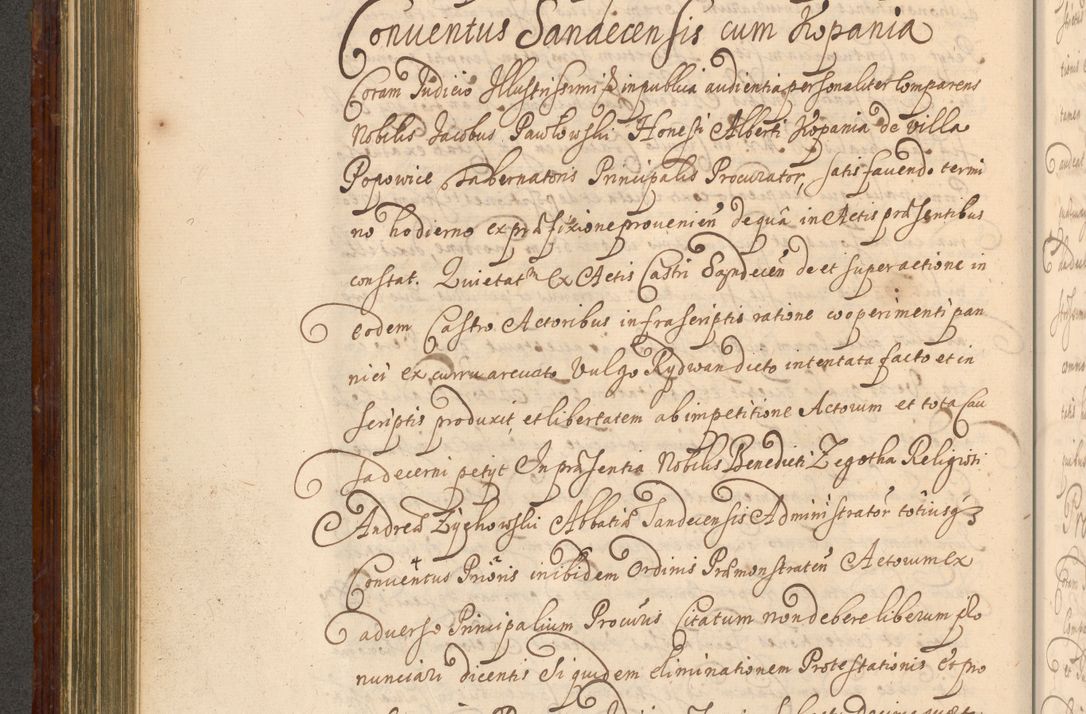 Conventus Sandecensis cum Kopania
Coram Judicio Illustrissimi & in publica audientia personaliter comparens
Nobilis Jacobus Pawłowski Honesti Alberti Kopania de villa
Popowice Tabernatoris Principalis Procurator, satisfaciendo termi
no hodierno ex præfixione provenien̄ de quâ in Actis præsentibus
constat. Quietatn̄ Ex Actis Castri Sandecen̄ de et super actione in
eodem Castro Actoribus infrascriptis ratione cooperimenti pan
nici ex curru arcuato Vulgo Rydwan dicto intentata facto et in
scriptis produxit et libertatem ab impetitione Actorum et tota Cau
sa decerni petyt In præsentia Nobilis Benedicti Zegotha Religiosi
Andreæ Zychowski Abbatiæ Sandecensis Administrator totiusq3
Conventus Prioris inibidem Ordinis Præmonstraten̄ Actorum Ex
adverso Principalium Procuris Citatum non debere liberum plo
nunciari dicentis Siquidem eliminationem Protestationis Et pro